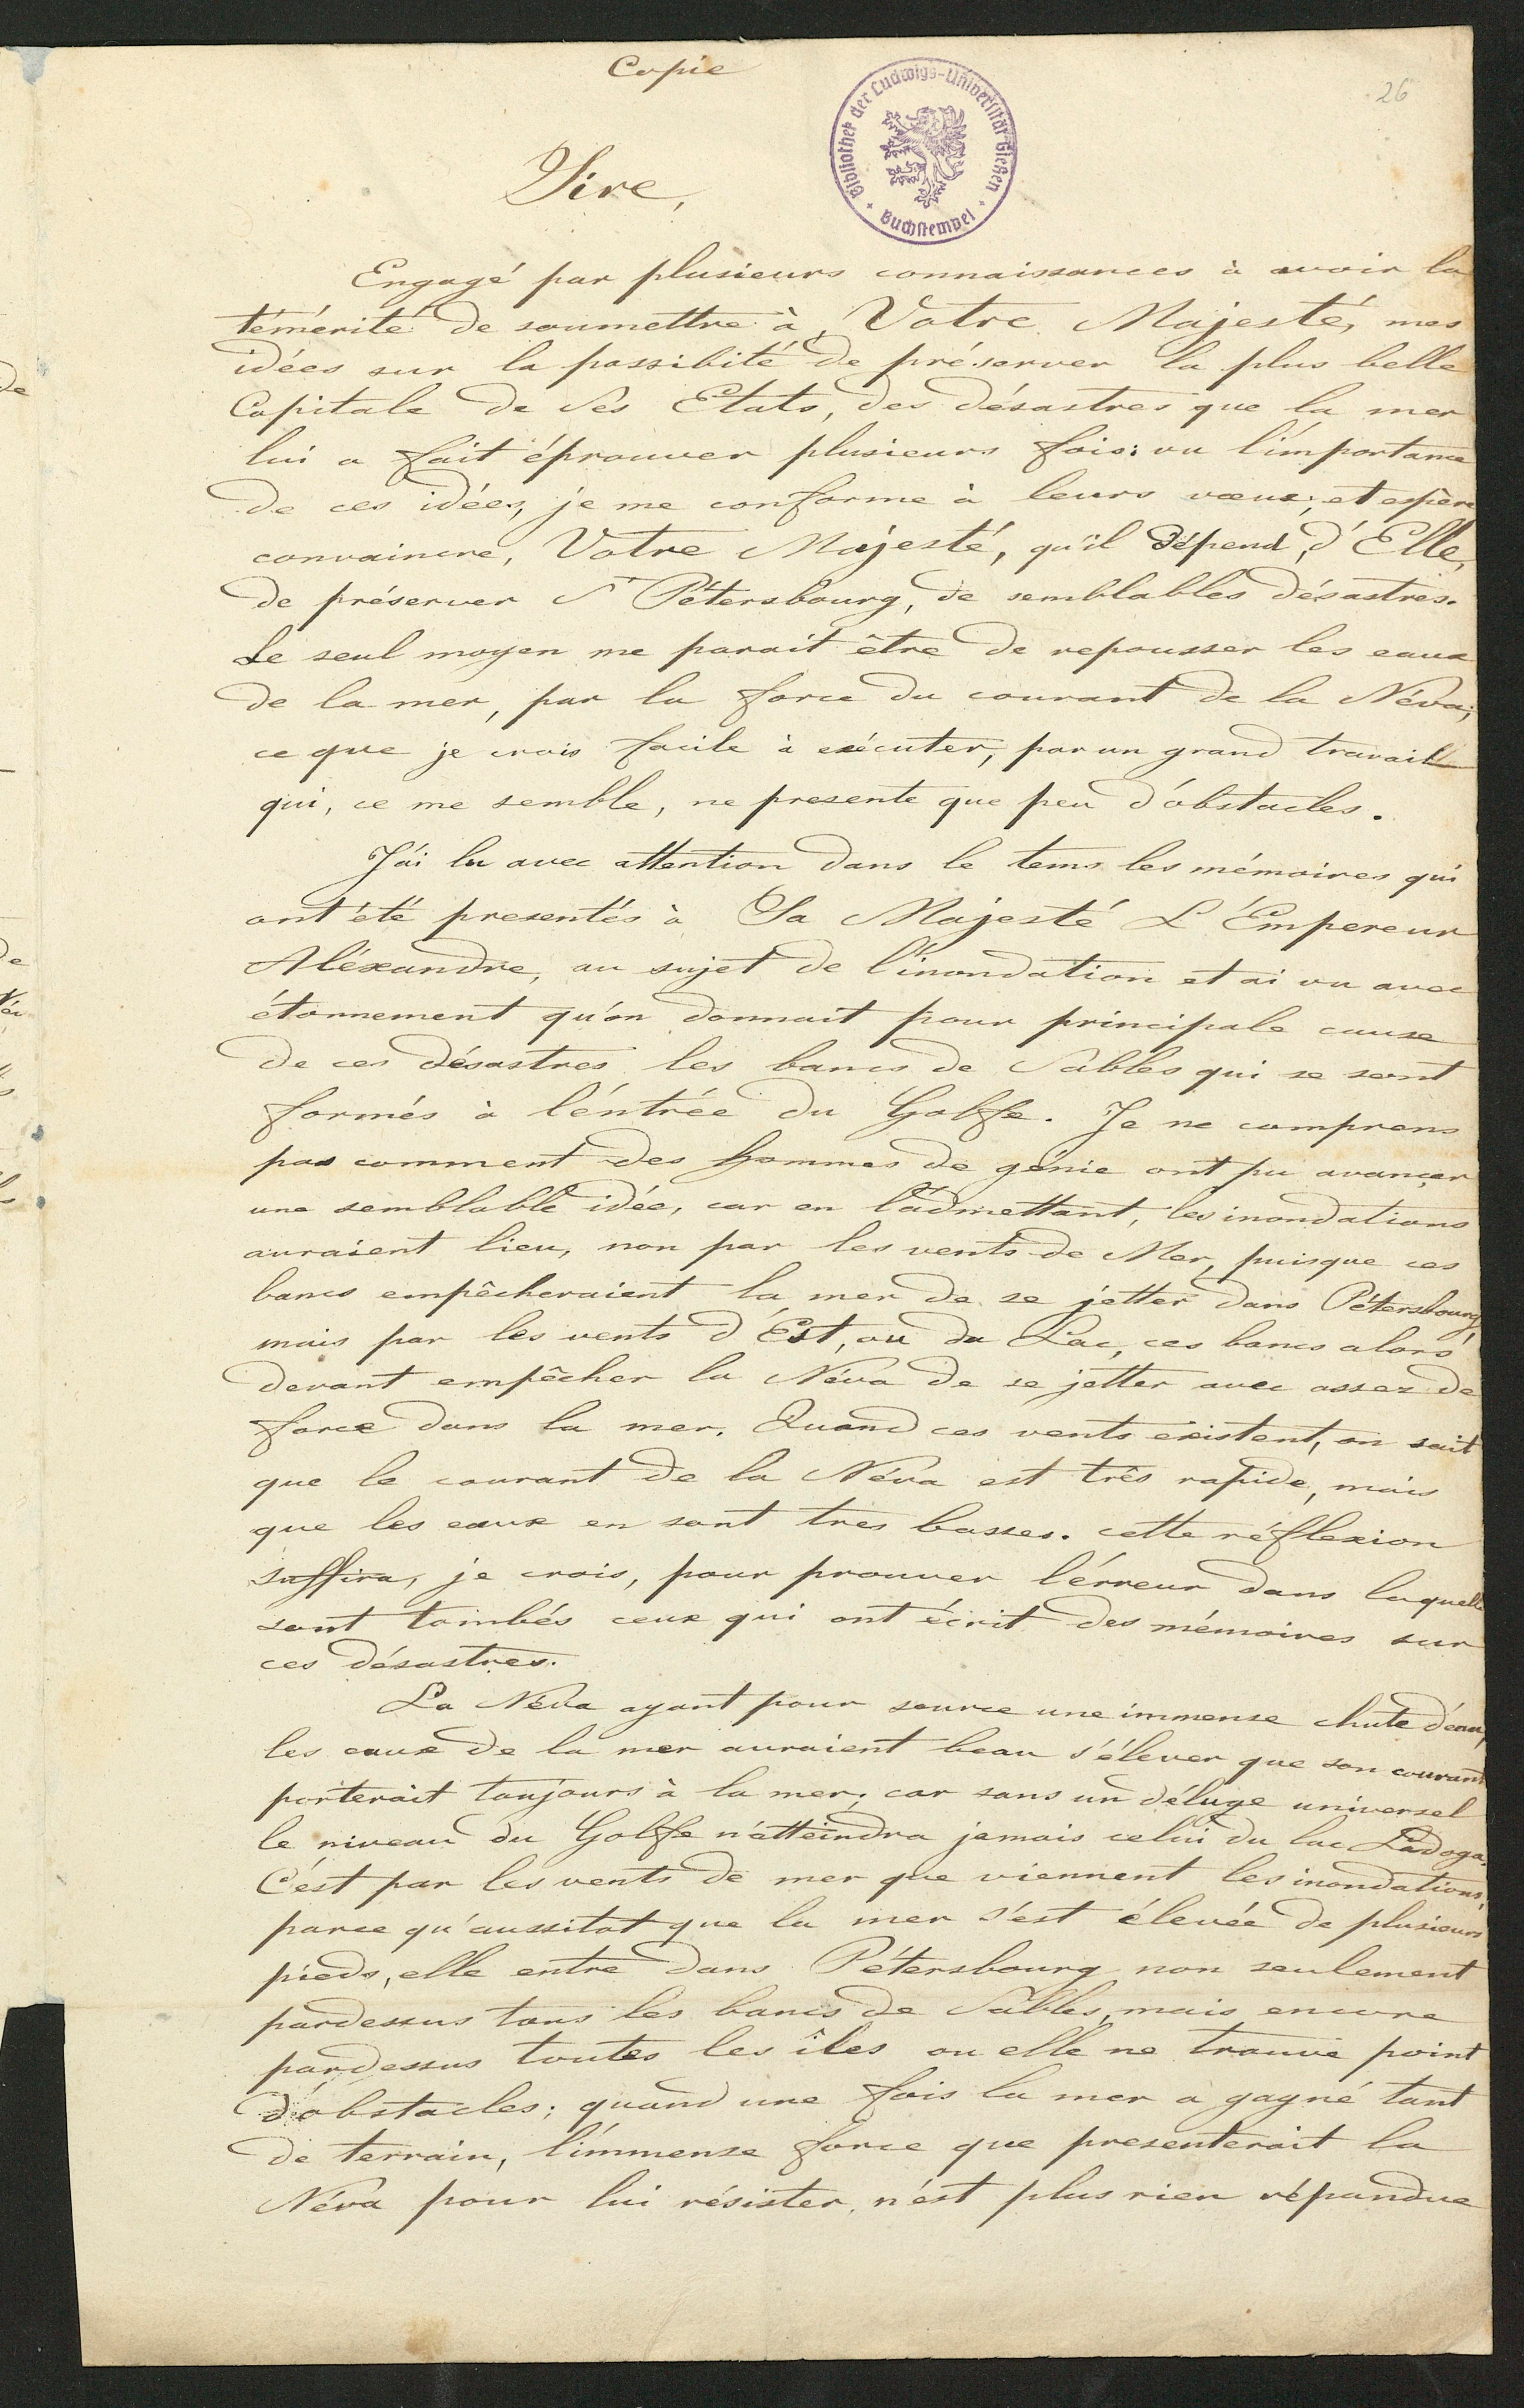 Copie
26
Bibliothek der Ludwigs-Universität Gießen
Buchstempel
Sire,
Engagé par plusieurs connaissances à avoir la
témérité de soumettre à, Votre Majesté, mes
idées sur la possibité de préserver la plus belle
Capitale de Ses Etats, des désastres que la mer
lui a fait éprouver plusieurs fois: vu l'importance
de ces idées, je me conforme à leurs voeux, et espère
convaincre, Votre Majesté, qu'il dépend, d'Elle,
de préserver St Pétersbourg, de semblables désastres.
Le seul moyen me parait être de repousser les eaux
de la mer, par la force du courant de la Néva;
ce que je crois facile à exécuter, par un grand travail
qui, ce me semble, ne presente que peu d'obstacles.
J'ai lu avec attention dans le tems les mémoires qui
ont été presentés à Sa Majesté L'Empereur
Aléxandre, au sujet de l'inondation et ai vu avec
étonnement qu'on donnait pour principale cause
de ces désastres les bancs de Sables qui se sont
formés à l'éntrée du Golffe. Je ne comprens
pas comment des hommes de génie ont pu avançer
une semblable idée, car en l'admettant, les inondations
auraient lieu, non par les vents de Mer, puisque ces
bancs empêcheraient la mer de se jetter dans Pétersbourg,
mais par les vents d'Est, ou du Lac, ces bancs alors
devant empêcher la Néva de se jetter avec assez de
force dans la mer. Quand ces vents existent, on sait
que le courant de la Néva est très rapide, mais
que les eaux en sont tres basses. cette réflexion
suffira, je crois, pour prouver l'érreur dans laquelle
sont tombés ceux qui ont écrit des mémoires sur
ces désastres.
La Néva ayant pour source une immense chute d'eau,
les eaux de la mer auraient beau s'élever que son courant
porterait toujours à la mer; car sans un déluge universel
le niveau du Golffe n'atteindra jamais celui du lac Ladoga.
C'est par les vents de mer que viennent les inondations,
parce qu'aussitot que la mer s'est élevée de plusieurs
pieds, elle entre dans Pétersbourg non seulement
pardessus tous les bancs de Sables, mais encore
pardessus toutes les îles ou elle ne trouve point
d'obstacles; quand une fois la mer a gagné tant
de terrain, l'immense force que presenterait la
Néva pour lui résister, n'est plus rien répandue